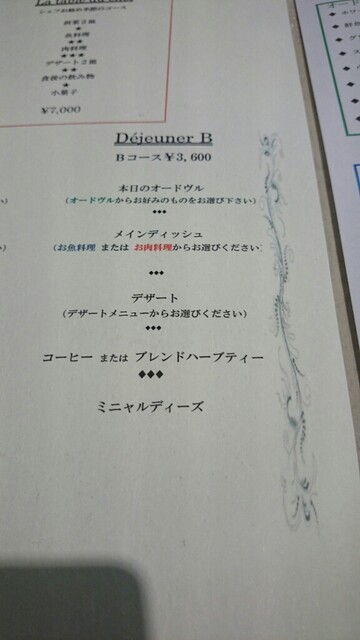 La table du chef
シェフお勧め季節のコース
前菜2皿
★
魚料理
★★
肉料理
★★★
デザート2皿
食後の飲み物
★
小菓子
¥7,000
Déjeuner B
Bコース¥3,600
本日のオードヴル
(オードヴルからお好みのものをお選び下さい)
◆◆◆
メインディッシュ
(お魚料理 または お肉料理からお選びください)
◆◆◆
デザート
(デザートメニューからお選びください)
◆◆◆
コーヒー または ブレンドハーブティー
◆◆◆
ミニャルディーズ
オード